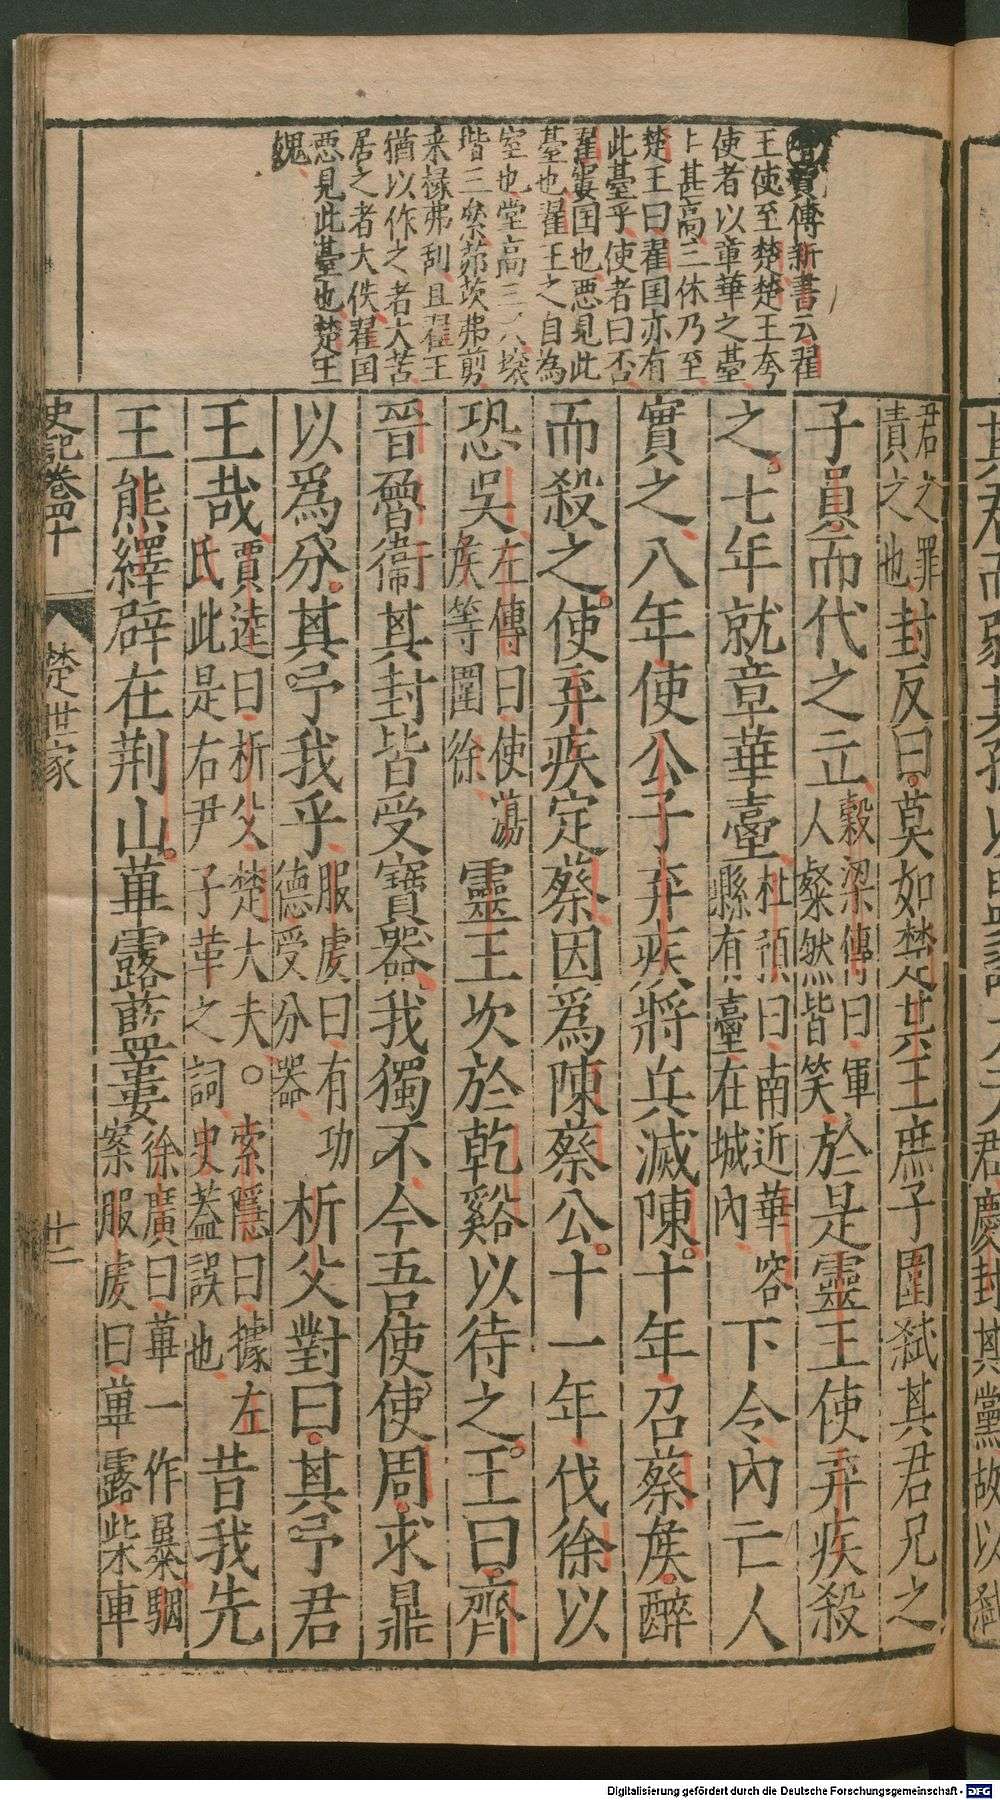 賈傅新書云翟
王使至楚楚王夸
使者以章華之臺
上甚高三休乃至
楚王曰翟国亦有
此臺乎使者曰否
翟窶国也惡見此
臺也翟王之自為
室也堂高三尺壤
堦三絫茆茨弗剪
采椽弗刮且翟王
猶以作之者大苦
居之者大佚翟国
惡見此臺也楚王
媿
君之罪
責之也
封反曰莫如楚共王庶子圍弑其君兄之
子員而代之立
穀梁傳曰軍
人粲然皆笑
於是靈王使弃疾殺
之七年就章華臺
杜預曰南近華容
縣有臺在城內
下令內亡人
實之八年使公子弃疾將兵滅陳十年召蔡侯醉
而殺之使弃疾定蔡因爲陳蔡公十一年伐徐以
恐吳
左傳曰使蕩
侯等圍徐
靈王次於乾谿以待之王曰齊
晉魯衞其封皆受寶器我獨不今吾使使周求鼎
以爲分其予我乎
服虔曰有功
德受分器
析父對曰其予君
王哉
賈逵曰析父楚大夫○索隱曰據左
氏此是右尹子革之詞史蓋誤也
昔我先
王熊繹辟在荆山蓽露藍蔞
徐廣曰蓽一作暴駰
案服虔曰蓽露柴車
史記卷四十
楚世家
廿二
Digitalisierung gefördert durch die Deutsche Forschungsgemeinschaft - DFG